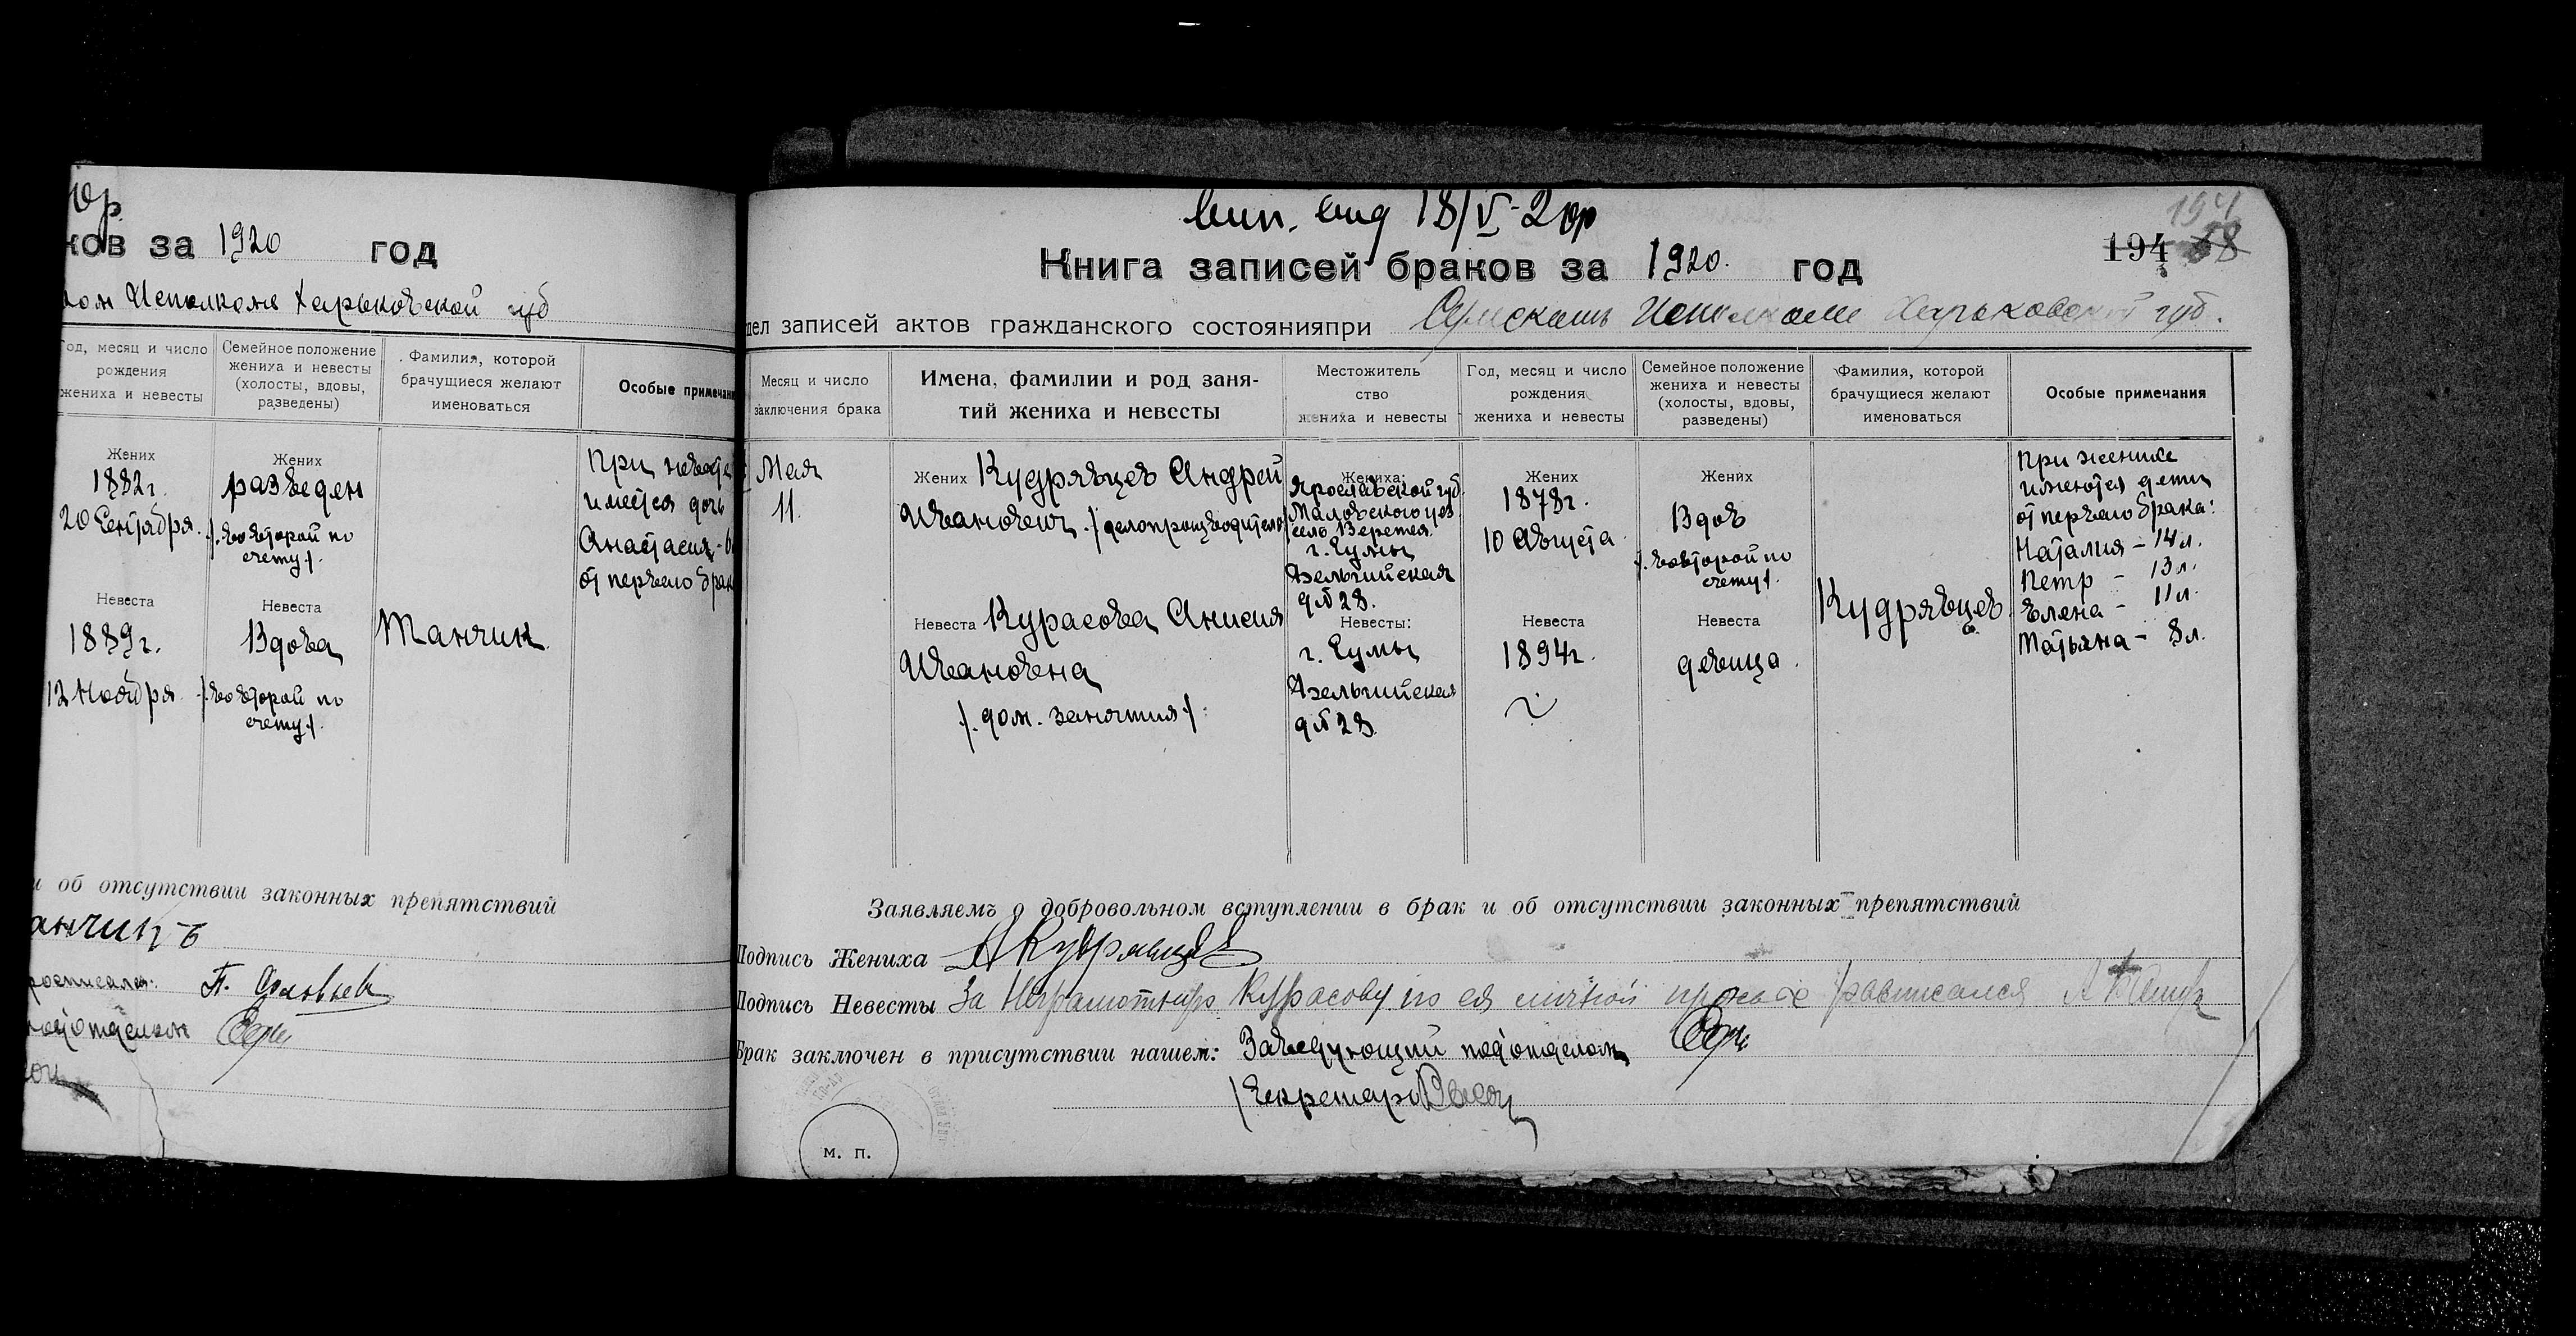 ков за 1920 год
ком Исполкоме Харьковской губ
Год, месяц и число рождения жениха и невесты
Семейное положение жениха и невесты (холосты, вдовы, разведены)
Фамилия, которой брачущиеся желают именоваться
Особые примечан
Жених
1882 г.
20 Сентября.
Жених
разведен
/. во второй по
счету /.
При невесте
имеется дочь
Анастасия -
от первого брак
Невеста
1889 г.
12 Ноября
Невеста
Вдова
/. во второй по
счету /.
Танчик
и об отсутствии законных препятствий
анчикъ
росписался. П.
подотделом
18/V-20р
Книга записей браков за 1920. год
194
194 58
дел записей актов гражданского состояния при Сумском Исполкоме Харьковской губ.
Месяц и число заключения брака
Имена, фамилии и род занятий жениха и невесты
Местожительство жениха и невесты
Год, месяц и число рождения жениха и невесты
Семейное положение жениха и невесты (холосты, вдовы, разведены)
Фамилия, которой брачущиеся желают именоваться
Особые примечания
Мая
11.
Жених Кудрявцев Андрей
Иванович. /делопроизводитель/
Жениха:
Ярославской губ.
уез.
село Веретея.
г. Сумы
Бельгийская
д № 28.
Жених
1878 г.
10 Августа.
Жених
Вдов
/. во второй по
счету /.
Невеста Курасова Анисия
Ивановна
/. дом. занятия /.
Невесты:
г. Сумы
Бельгийская
д № 28.
Невеста
1894 г.
Невеста
девица.
Кудрявцев
При женихе
имеются дети
от первого брака:
Наталия - 14 л.
Петр - 13 л.
Елена - 11 л.
Татьяна - 8 л.
Заявляемъ о добровольном вступлении в брак и об отсутствии законных препятствий
Подпись Жениха А Кудрявцев
Подпись Невесты За неграмотную Курасову по ея личной просьбе расписался
Брак заключен в присутствии нашем: Заведующий подотделом
Секретарь
м. п.